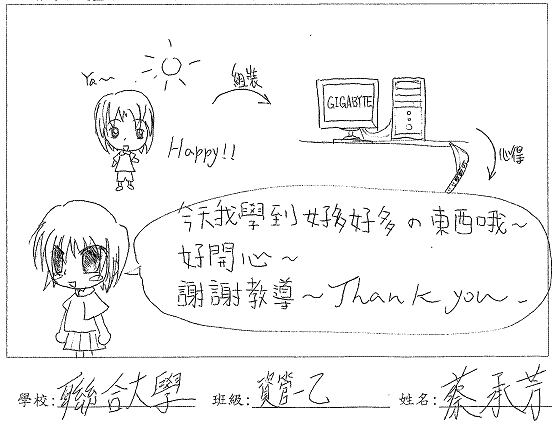 Ya~
組裝
GIGABYTE
Happy!!
心得
今天我學到好多好多の東西哦~
好開心~
謝謝教導~Thank you~.
學校:聯合大學 班級:資管一乙 姓名:蔡承芳